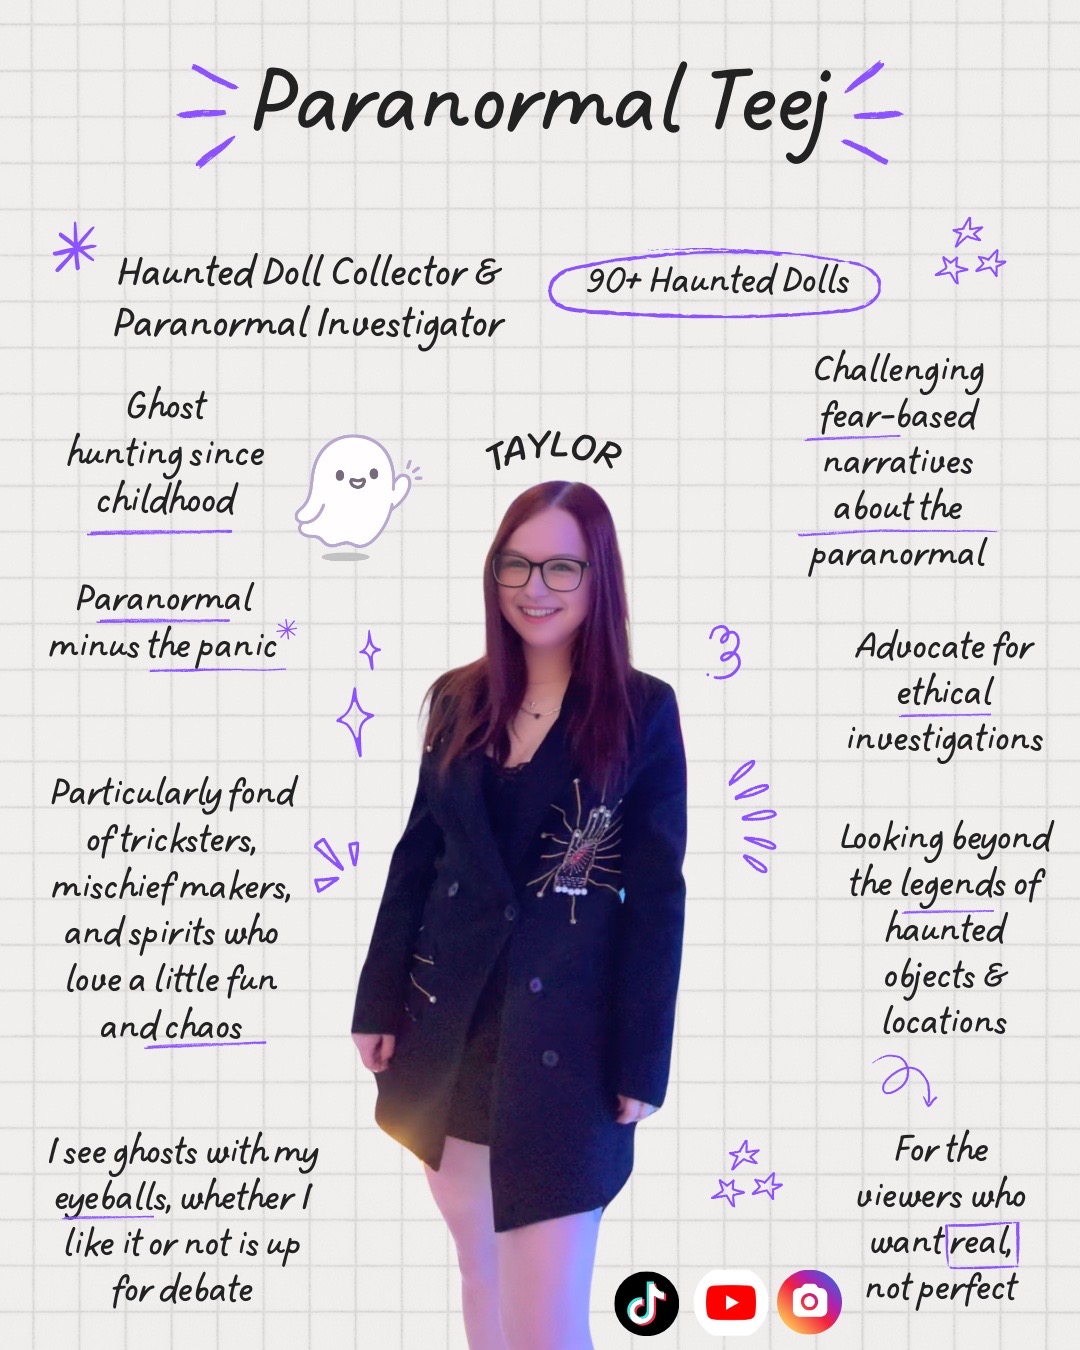 Paranormal Teej
Haunted Doll Collector &
Paranormal Investigator
90+ Haunted Dolls
Ghost
hunting since
childhood
TAYLOR
Challenging
fear-based
narratives
about the
paranormal
Paranormal
minus the panic*
Advocate for
ethical
investigations
Particularly fond
of tricksters,
mischief makers,
and spirits who
love a little fun
and chaos
Looking beyond
the legends of
haunted
objects &
locations
I see ghosts with my
eyeballs, whether I
like it or not is up
for debate
For the
viewers who
want real,
not perfect